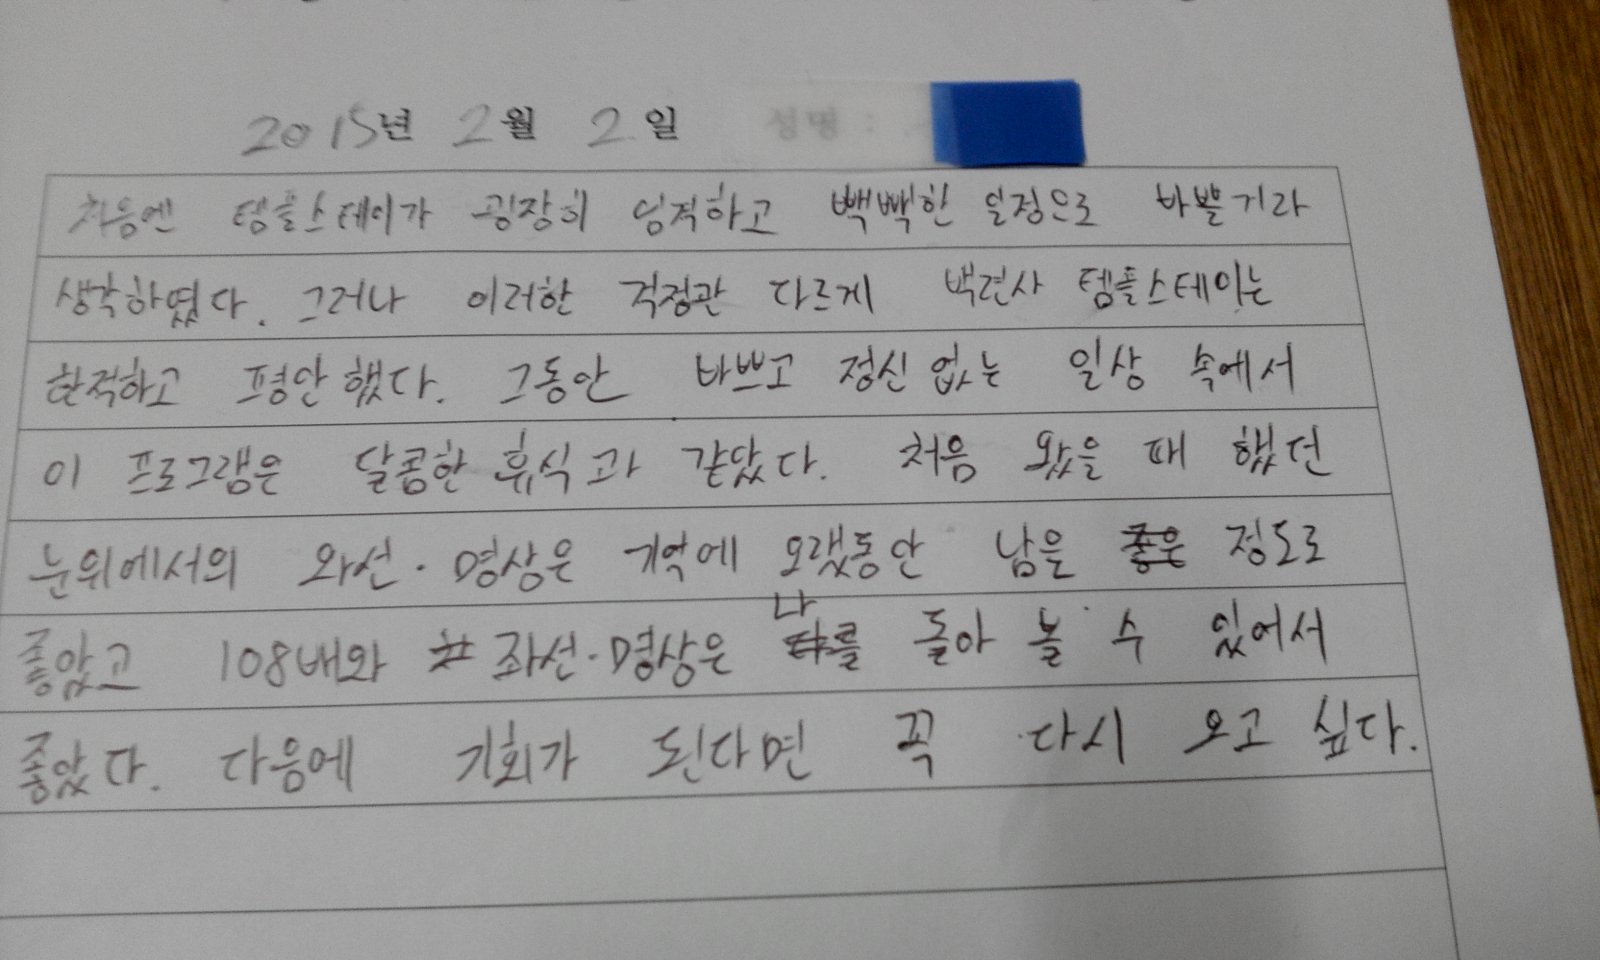 2015년 2월 2일 성명 :
처음엔 템플스테이가 굉장히 엄격하고 빡빡한 일정으로 바쁠거라
생각하였다. 그러나 이러한 걱정관 다르게 백련사 템플스테이는
한적하고 평안했다. 그동안 바쁘고 정신없는 일상 속에서
이 프로그램은 달콤한 휴식과 같았다. 처음 왔을 때 했던
눈위에서의 와선·명상은 기억에 오랬동안 남을 정도로
좋았고 108배와 좌선·명상은 나를 돌아 볼 수 있어서
좋았다. 다음에 기회가 된다면 꼭 다시 오고 싶다.